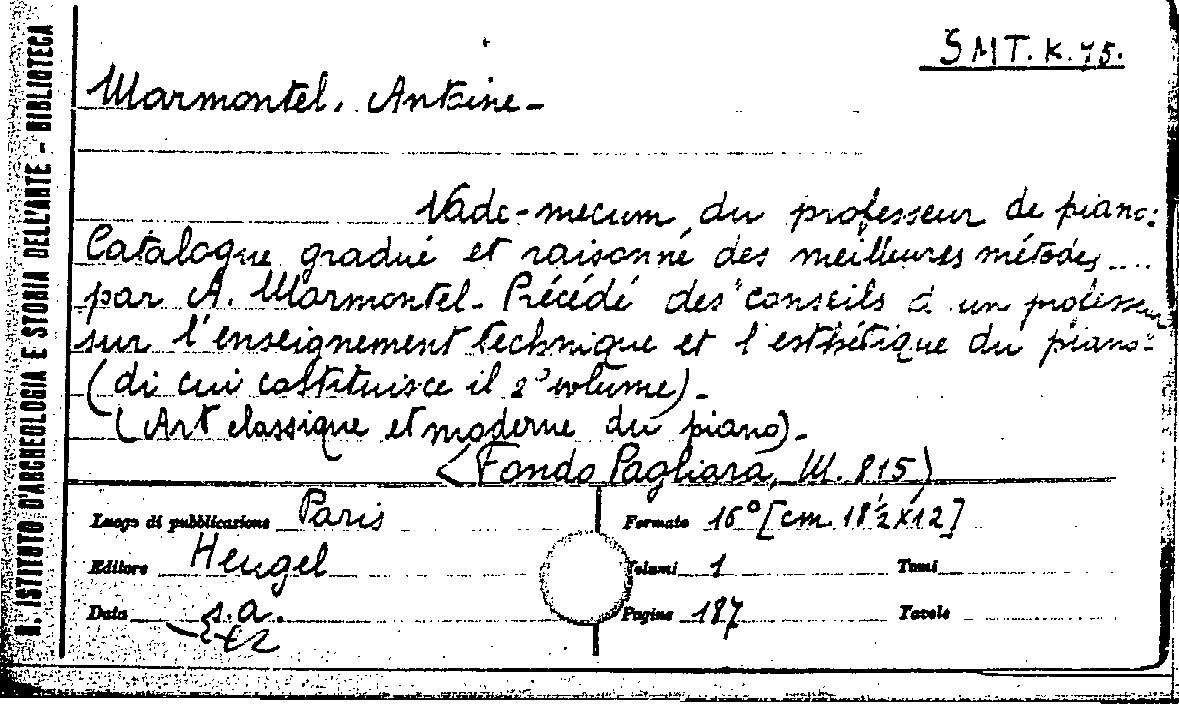 R. ISTITUTO D'ARCHEOLOGIA E STORIA DELL'ARTE - BIBLIOTECA
SMT. K. 75.
Marmontel, Antoine -
Vade-mecum du professeur de piano:
Catalogue gradué et raisonné des meilleures métodes ....
par A. Marmontel - Précédé des conseils à un professeur
sur l'enseignement technique et l'esthétique du piano -
(di cui costituisce il 2° volume) -
(Art classique et moderne du piano) -
(Fondo Pagliara, III. 815)
Luogo di pubblicazione Paris
Formato 16° [cm 18½x12]
Editore Heugel
Volumi 1
Tomi
Data s.a.
Pagine 187
Tavole